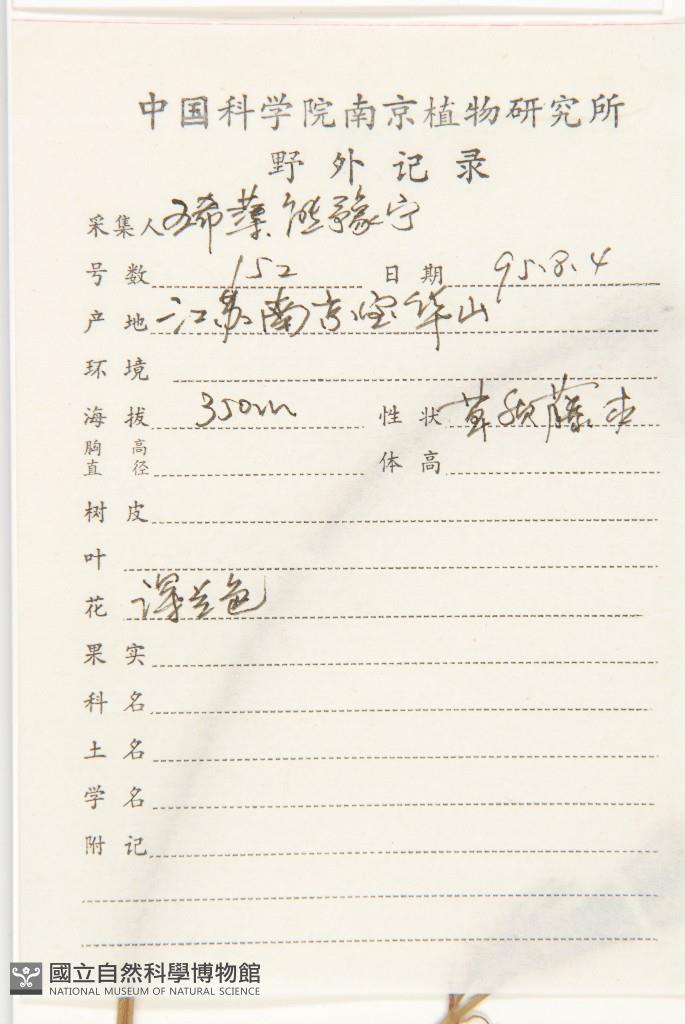 中国科学院南京植物研究所
野外记录
采集人 王希蕖 熊豫宁
号数 152 日期 95.8.4
产地 江苏南京宝华山
环境
海拔 350m 性状 草质藤本
胸高直径 体高
树皮
叶
花 深兰色
果实
科名
土名
学名
附记
國立自然科學博物館
NATIONAL MUSEUM OF NATURAL SCIENCE